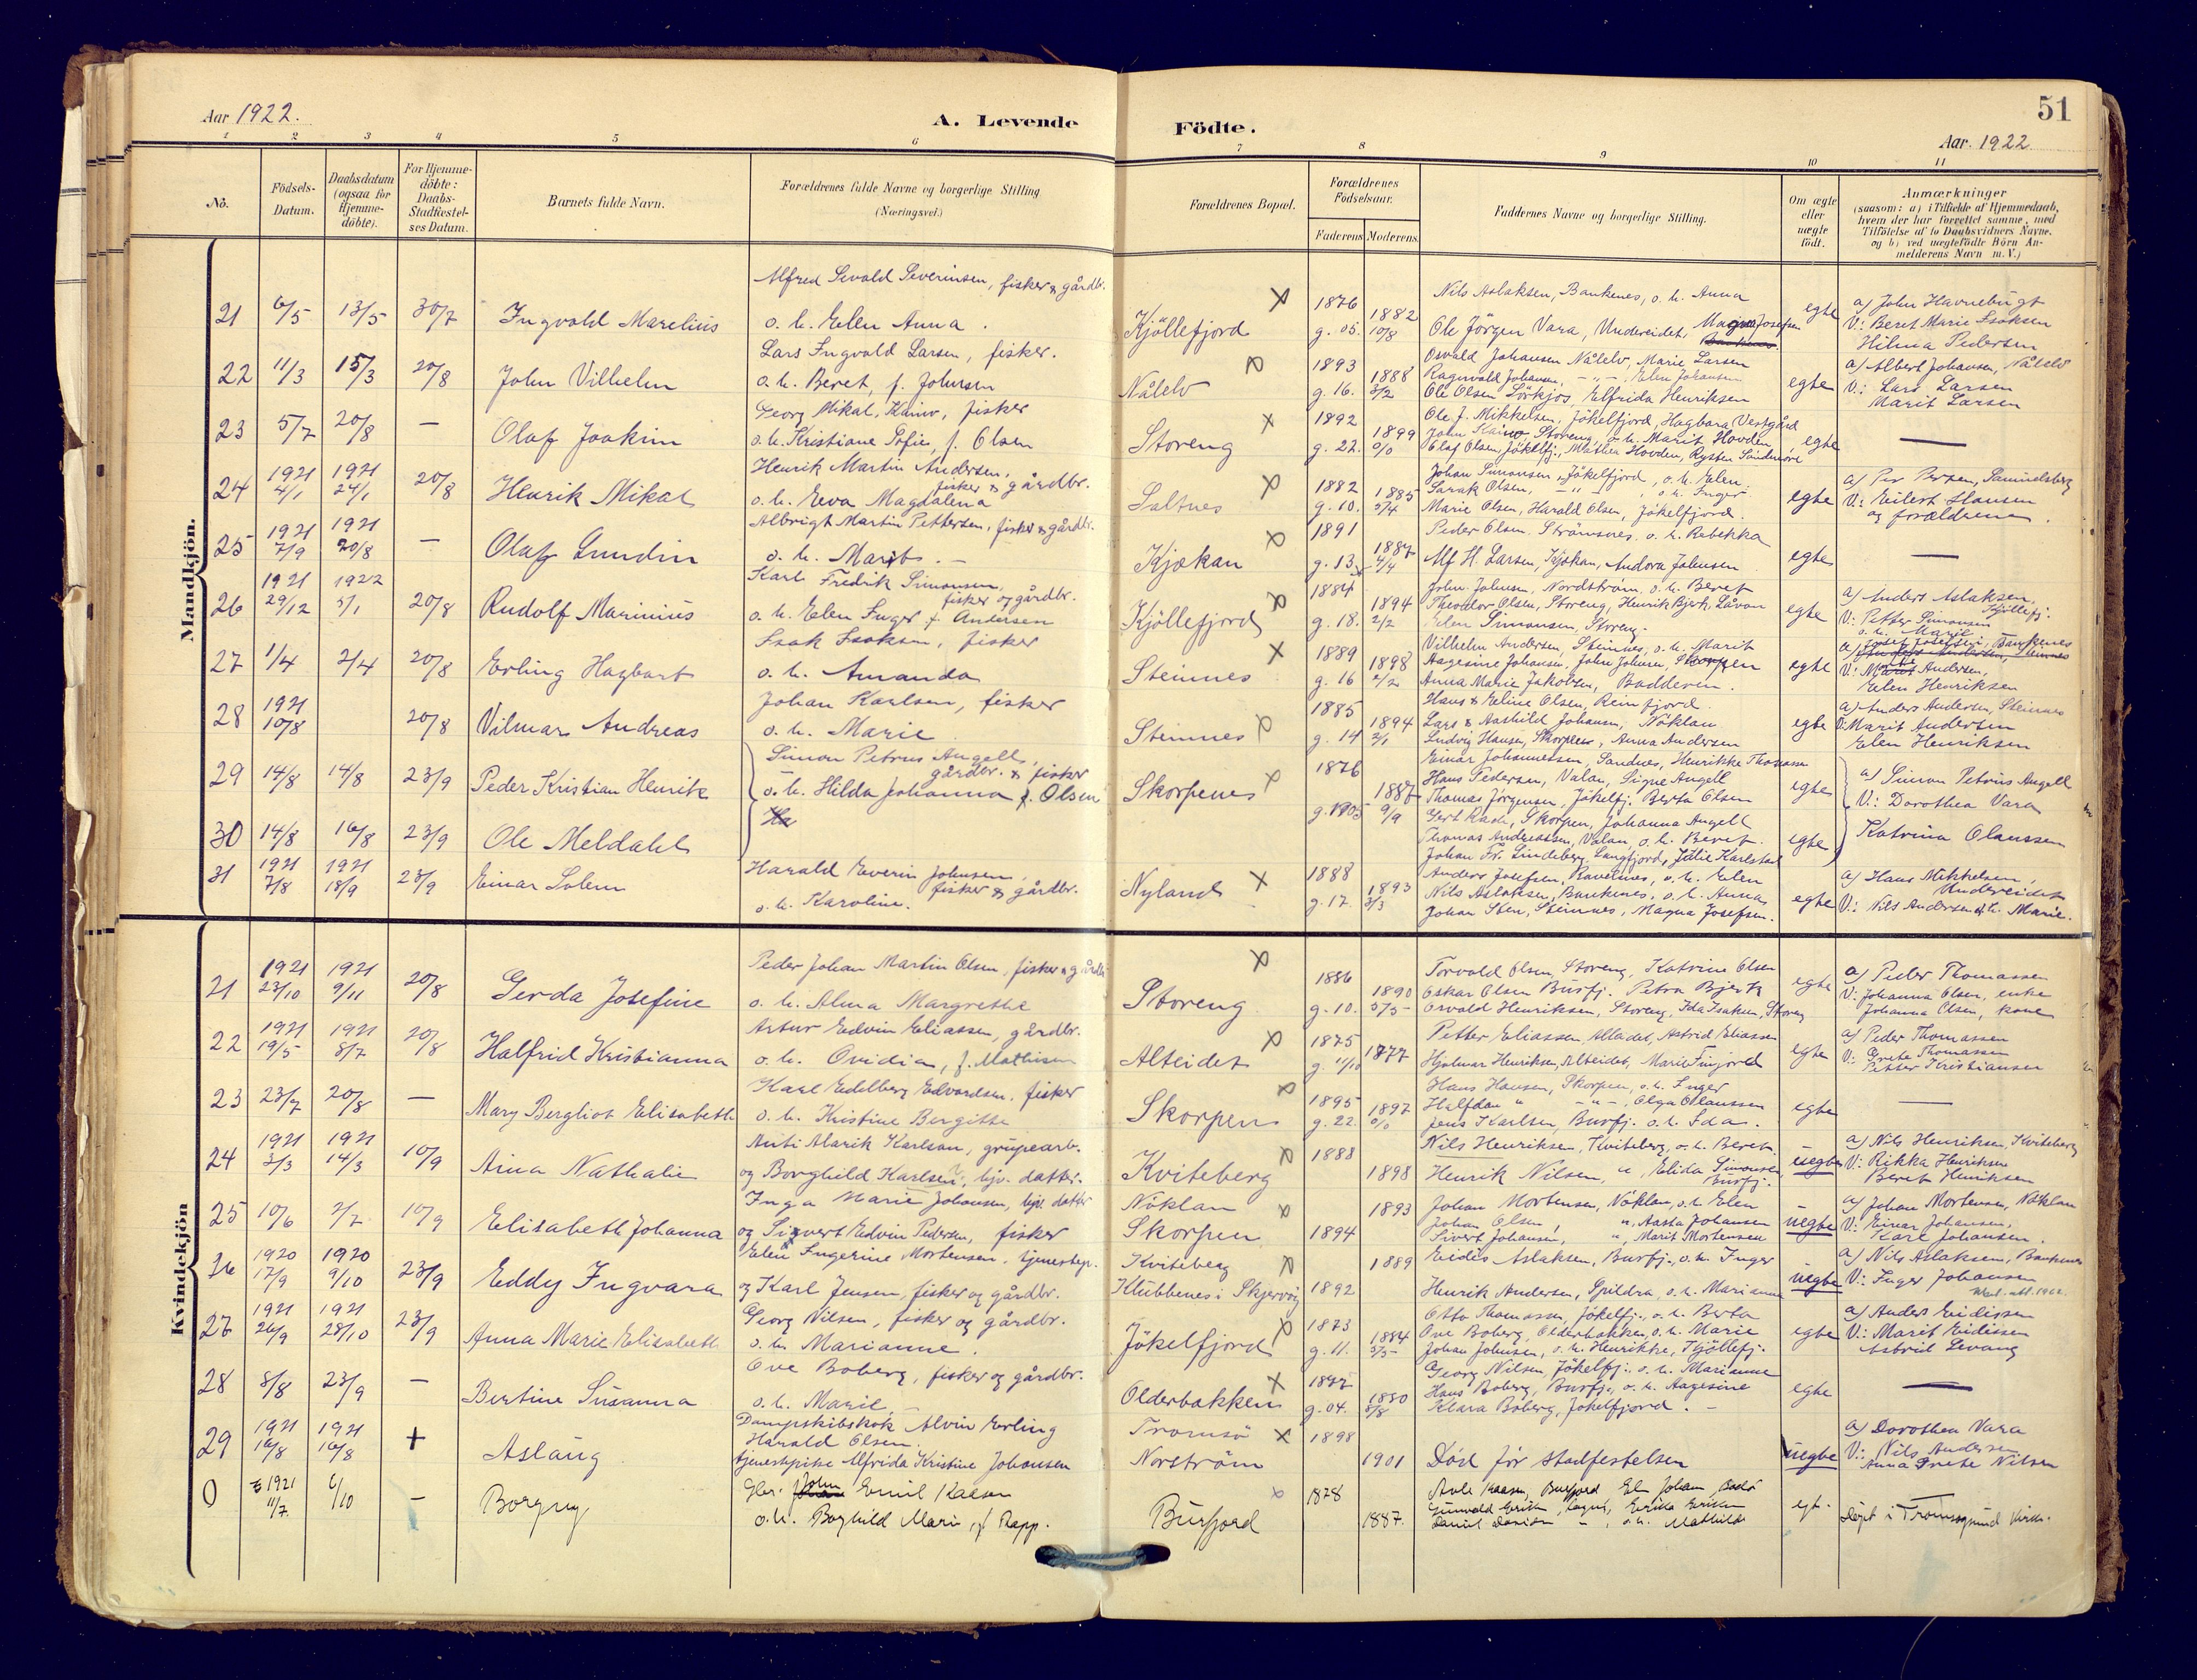 Aar 1922.
A. Levende
Födte.
51
Aar 1922
1 2 3 4 5 6 7 8 9 10 11
No.
Födsels-Datum.
Daabsdatum (ogsaa for Hjemme-döbte).
For Hjemme-döbte: Daabs-Stadfestel-ses Datum.
Barnets fulde Navn.
Forældrenes fulde Navne og borgerlige Stilling (Næringsvei.)
Forældrenes Bopæl.
Forældrenes Födselsaar.
Faderens Moderens.
Faddernes Navne og borgerlige Stilling.
Om ægte eller uægte födt.
Anmærkninger
(saasom: a) i Tilfælde af Hjemmedaab, hvem der har forrettet samme, med Tilföielse af to Daabsvidners Navne. og b) ved uægtefödte Börn An-melderens Navn m. V.)
Mandkjön.
Alfred Sevald Severinsen, fisker & gårdbr.
21 6/5 13/5 30/7 Ingvald Marelius o. h. Elen Anna. Kjöllefjord 1876 1882 g. 05. 10/8
Nils Aslaksen, Bankenes, o. h. Anna
Ole Jörgen Vara, Undereidet, Magna Josefsen
egte
a) John Havnebugt
V: Beret Marie Isaksen
Hilma Pedersen
Lars Ingvald Larsen, fisker.
22 11/3 15/3 20/8 John Vilhelm o. h. Beret, f. Johnsen Nålelv 1893 1888 g. 16. 3/2
Osvald Johansen Nålelv, Marie Larsen
Ragnvald Johansen, -"-, Elen Johansen
Ole Olsen Sörkjos, Elfrida Henriksen
egte
a) Albert Johansen, Nålelv
V: Lars Larsen
Marit Larsen
Georg Mikal, Kaino, fisker
23 5/7 20/8 — Olaf Joakim o. h. Kristiane Sofie, f. Olsen Storeng 1892 1899 g. 22. 0/0
Ole J. Mikkelsen, Jökelfjord, Hagbara Vestgård
John Kaino Storeng, o. h. Marit Hovden
Olaf Olsen, Jökelfj., Mathea Hovden, Rysten Söndmöre
egte —
Henrik Martin Andersen, fisker & gårdbr.
24 1921 4/1 1921 24/1 20/8 Henrik Mikal o. h. Eva Magdalena Saltnes 1882 1885 g. 10. 5/4
Johan Simonsen, Jökelfjord, o. h. Elen
Sarak Olsen, -"- , o. h. Inger
Marie Olsen, Harald Olsen, Jökelfjord.
egte
V: Eilert Hansen
og forældrene.
Albrigt Martin Pettersen, fisker & gårdbr.
25 1921 7/9 1921 20/8 — Olaf Gundin o. h. Marit. — Kjækan 1891 1887 g. 13 4/4
Peder Olsen Strömsnes, o. h. Rebekka
Alf H. Larsen, Kjækan, Andora Johnsen
egte —
Karl Fredrik Simonsen, fisker og gårdbr.
26 1921 29/12 1922 5/1 20/8 Rudolf Marinius o. h. Elen Inger f. Andersen Kjöllefjord 1884 1894 g. 18. 2/2
John Johnsen, Nordström, o. h. Beret
Theodor Olsen, Storeng, Henrik Bjerk, Låvan
Elen Simonsen, Storeng.
egte
a) Anders Aslaksen, Kjöllefj.
V: Petter Simonsen
o. h. Marie
Isak Isaksen, fisker
27 1/4 2/4 20/8 Erling Hagbart o. h. Amanda Steinnes 1889 1898 g. 16 2/2
Vilhelm Andersen, Steinnes, o. h. Marit
Aagesine Johansen, John Johnsen, Skorpen
Anna Marie Jakobsen, Badderen.
egte
a) Josef Josefsen, Bankenes
V: Andersen,
Elen Henriksen
Johan Karlsen, fisker
28 1921 10/8 20/8 Vilmar Andreas o. h. Marie Steinnes 1885 1894 g. 14 2/1
Hans & Eline Olsen, Reinfjord.
Lars & Aashild Johansen, Nöklan
Ludvig Hansen, Skorpen, Anna Andersen
egte
a) Anders Andersen, Steinnes
V: Marit Andersen
Elen Henriksen
Simon Petrus Angell, gårdbr. & fisker
29 14/8 14/8 23/9 Peder Kristian Henrik o. h. Hilda Johanna f. Olsen Skorpenes 1876 1887 g. 1905 9/9
Einar Johannessen, Sandnes, Henrikke Thomassen
Hans Pedersen, Valan, Signe Angell
Thomas Jörgensen, Jökelfj. Berta Olsen
egte
a) Simon Petrus Angell
V: Dorothea Vara
Katrina Olaussen
30 14/8 16/8 23/9 Ole Meldahl
Gert Rash, Skorpen, Johanna Angell
Thomas Andreassen, Valan, o. h. Beret
Johan Fr. Lindeberg, Langfjord, Julie Karlstad
egte
Harald Everin Johnsen, fisker & gårdbr.
31 1921 7/8 1921 18/9 23/9 Einar Solem o. h. Karoline. Nyland 1888 1893 g. 17. 3/3
Anders Josefsen, Ravelsnes, o. h. Elen
Nils Aslaksen, Bankenes, o. h. Anna
Johan Sten, Steinnes, Magna Josefsen.
egte
a) Hans Mikkelsen, Undereidet
V: Nils Andersen o. h. Marie.
Kvindekjön
Peder Johan Martin Olsen, fisker & gårdbr
21 1921 23/10 1921 9/11 20/8 Gerda Josefine o. h. Alma Margrethe Storeng 1886 1890 g. 10. 5/5
Torvald Olsen, Storeng, Katrine Olsen
Oskar Olsen Burfj. Petra Bjerk
Osvald Henriksen, Storeng, Ida Isaksen, Storeng
egte
a) Peder Thomassen
V: Johanna Olsen, enke
Johanna Olsen, kone
Artur Edvin Eliassen, gårdbr.
22 1921 19/5 1921 8/7 20/8 Halfrid Kristianna o. h. Ovidia, f. Mathisen Alteidet 1875 1877 g. 11/10
Petter Eliassen, Alladet, Astrid Eliassen
Hjalmar Henriksen, Alteidet, Marie Finjord
egte
a) Peder Thomassen
V: Grete Thomassen
Petter Kristiansen
Karl Edelberg Edvardsen, fisker
23 23/7 20/8 — Mary Bergliot Elisabeth o. h. Kristine Bergitte Skorpen 1895 1897 g. 22. 0/0
Hans Hansen, Skorpen, o. h. Inger
Halfdan " -"-, Olga Olaussen
Jens Karlsen, Burfj. o. h. Ida.
egte —
Anti Alarik Karlson, grubearb.
24 1921 3/3 1921 14/3 10/9 Aina Nathalie og Borghild Karlsen, hjv. datter. Kviteberg 1888 1898
Nils Henriksen, Kviteberg, o. h. Beret
Henrik Nilsen, ", Elida Simonsen Burfj.
uegte
a) Nils Henriksen, Kviteberg
V: Rikka Henriksen
Beret Henriksen
Inga Marie Johansen, hjv. datter
25 10/6 2/7 10/9 Elisabeth Johanna og Sigvert Edvin Pedersen, fisker Nöklan Skorpen 1894 1893
Johan Mortensen, Nöklan, o. h. Elen
Johan Olsen, ", Aasta Johansen
Sivert Johansen, ", Marit Mortensen
uegte
a) Johan Mortensen, Nöklan
V: Einar Johansen,
Karl Johansen.
Elen Ingerine Mortensen, tjenestep.
26 1920 17/9 1920 9/10 23/9 Eddy Ingvara og Karl Jensen, fisker og gårdbr. Kviteberg Klubbenes i Skjervöy 1892 1889
Eidis Aslaksen, Burfj., o. h. Inger
Henrik Andersen, Spildra, o. h. Marianne
uegte
a) Nils Aslaksen, Bankenes
V: Inger Johansen
Georg Nilsen, fisker og gårdbr.
27 1921 26/9 1921 28/10 23/9 Anna Marie Elisabeth o. h. Marianne. Jökelfjord 1873 1884 g. 11. 5/5
Otto Thomassen, Jökelfj., o. h. Berta
Ove Boberg, Olderbakken, o. h. Marie
Johan Johnsen, o. h. Henrikke, Kjöllefj.
egte
a) Anders Eidissen
V: Marit Eidissen
Astrid Levang
Ove Boberg, fisker og gårdbr.
28 8/8 23/9 — Bertine Susanna o. h. Marie Olderbakken 1877 1880 g. 04. 8/8
Georg Nilsen, Jökelfj. o. h. Marianne
Hans Boberg, Burfj., o. h. Aagesine
Klara Boberg, Jökelfjord. —
egte —
Dampskibskok Alvin Erling
29 1921 16/8 1921 16/8 + Aslaug Harald Olsen. Tromsö 1898
tjenestepike Alfrida Kristine Johansen Norström 1901 Död för stadfestelsen uegte
a) Dorothea Vara
V: Nils Andersen
Anna Grete Nilsen
0 1921 11/7 6/10 — Borgny Gbr. John Emil Kaasen
o. h. Borghild Marie, f. Rapp. Burfjord 1878 1887.
egt.
Döpt i Tromsøysund Kirke.